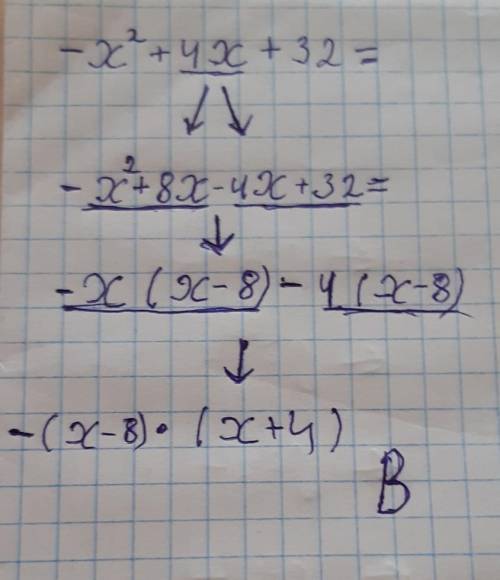 -x² + 4x + 32 =
-x² + 8x - 4x + 32 =
-x (x - 8) - 4 (x - 8)
-(x - 8) · (x + 4)
B